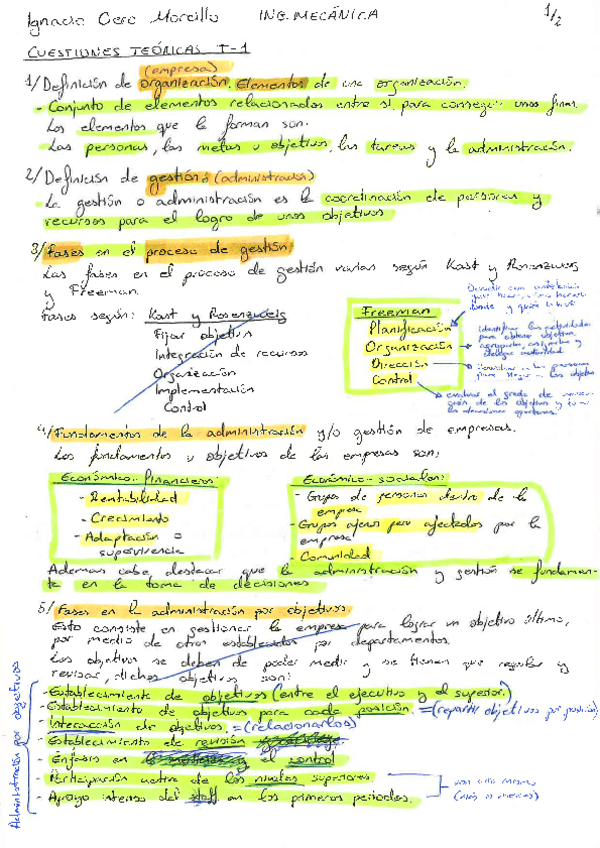 Ignacio Cero Morcillo ING. MECÁNICA 1/2
CUESTIONES TEÓRICAS T-1
(empresa)
1/ Definición de organización. Elementos de una organización.
- Conjunto de elementos relacionados entre sí para conseguir unos fines.
Los elementos que la forman son:
Las personas, las metas u objetivos, las tareas y la administración.
2/ Definición de gestión (administración)
La gestión o administración es la coordinación de personas y
recursos para el logro de unos objetivos
3/ Fases en el proceso de gestión
Las fases en el proceso de gestión varían según Kast y Rosenzweig
y Freeman.
Fases según: Kast y Rosenzweig
Fijar objetivos
Integración de recursos
Organización
Implementación
Control
Freeman
Planificación
Organización
Dirección
Control
4/ Fundamentos de la administración y/o gestión de empresas.
Los fundamentos u objetivos de las empresas son:
Económico-financieros:
- Rentabilidad
- Crecimiento
- Adaptación o
supervivencia
Económico-sociales:
- Grupos de personas dentro de la
empresa
- Grupos ajenos pero afectados por la
empresa
- Comunidad
Ademas cabe destacar que la administración y gestión se fundamen-
ta en la toma de decisiones
5/ Fases en la administración por objetivos
Esto consiste en gestionar la empresa para lograr un objetivo último,
por medio de otros establecidos por departamentos.
Los objetivos se deben de poder medir y se tienen que regular y
revisar, dichos objetivos son:
Administración por objetivos
- Establecimiento de objetivos (entre el ejecutivo y el superior)
- Establecimiento de objetivos para cada posición. =(repartir objetivos por posición)
- Interacción de objetivos. =(relacionarlos)
- Establecimiento de revisión
- Énfasis en el control
- Participación activa de los niveles superiores.
- Apoyo intenso del staff en los primeros periodos.